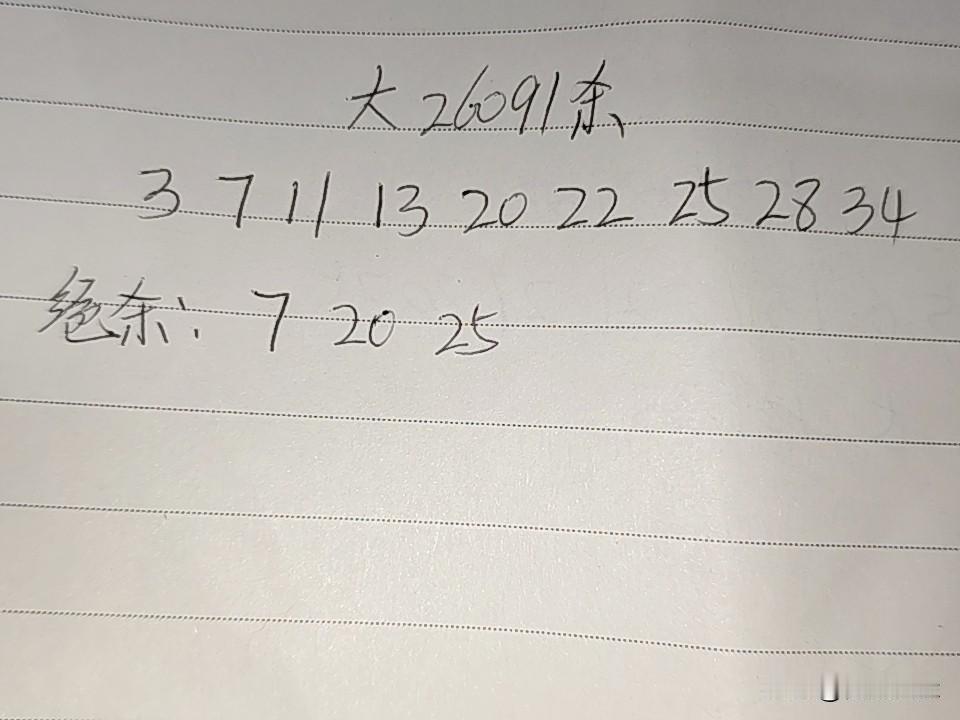 大26091杀
3 7 11 13 20 22 25 28 34
绝杀: 7 20 25